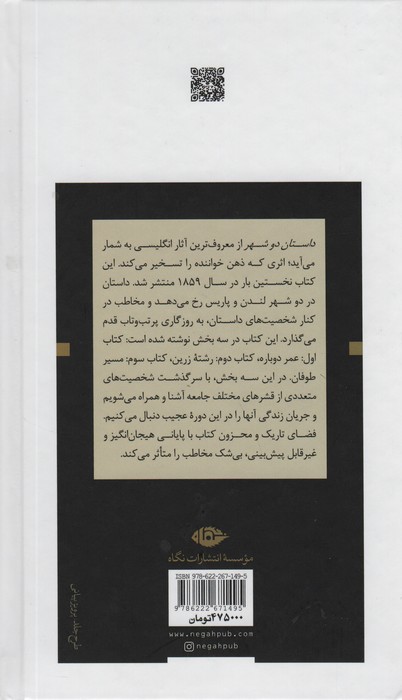 داستان دو شهر از معروف‌ترین آثار انگلیسی به شمار
می‌آید؛ اثری که ذهن خواننده را تسخیر می‌کند. این
کتاب نخستین بار در سال ۱۸۵۹ منتشر شد. داستان
در دو شهر لندن و پاریس رخ می‌دهد و مخاطب در
کنار شخصیت‌های داستان، به روزگاری پرتب‌وتاب قدم
می‌گذارد. این کتاب در سه بخش نوشته شده است: کتاب
اول: عمر دوباره، کتاب دوم: رشتهٔ زرین، کتاب سوم: مسیر
طوفان. در این سه بخش، با سرگذشت شخصیت‌های
متعددی از قشرهای مختلف جامعه آشنا و همراه می‌شویم
و جریان زندگی آنها را در این دورهٔ عجیب دنبال می‌کنیم.
فضای تاریک و محزون کتاب با پایانی هیجان‌انگیز و
غیرقابل پیش‌بینی، بی‌شک مخاطب را متأثر می‌کند.
مؤسسهٔ انتشارات نگاه
ISBN 978-622-267-149-5
9 786222 671495
۴۷۵۰۰۰تومان
www.negahpub.com
negahpub
طرح جلد: پرویز بیانی